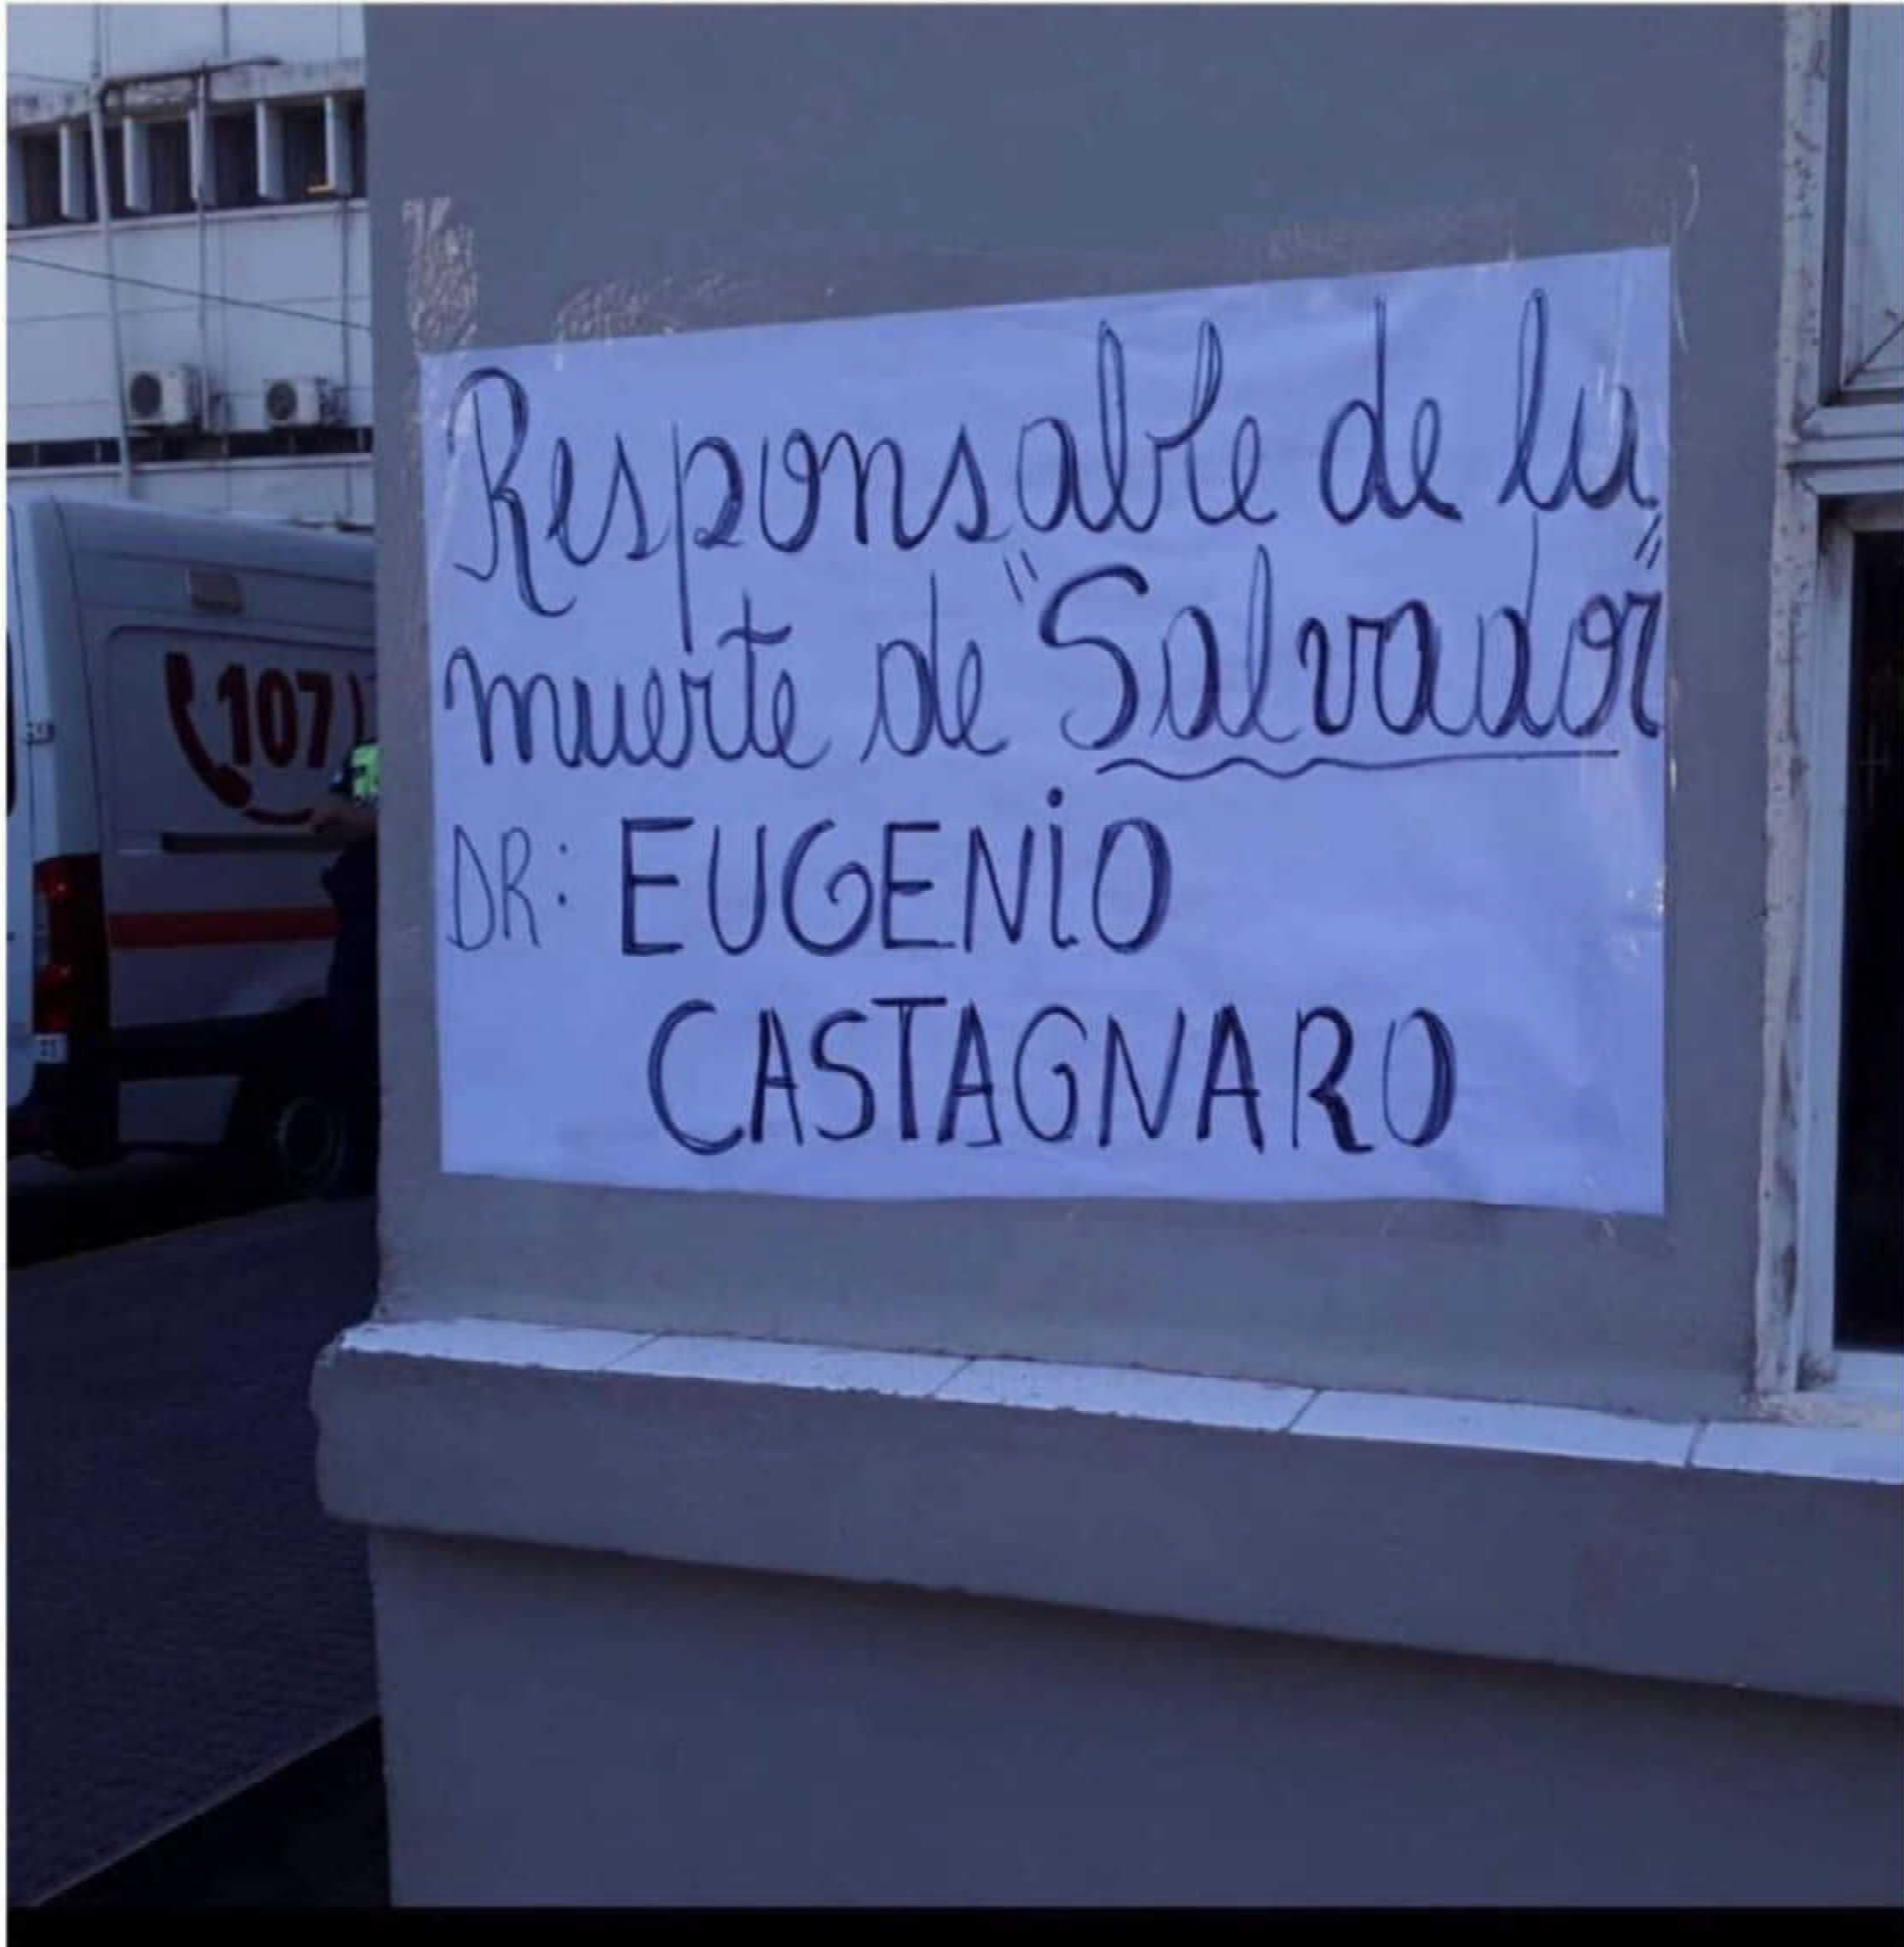 107
Responsable de la
muerte de "Salvador"
DR: EUGENIO
CASTAGNARO